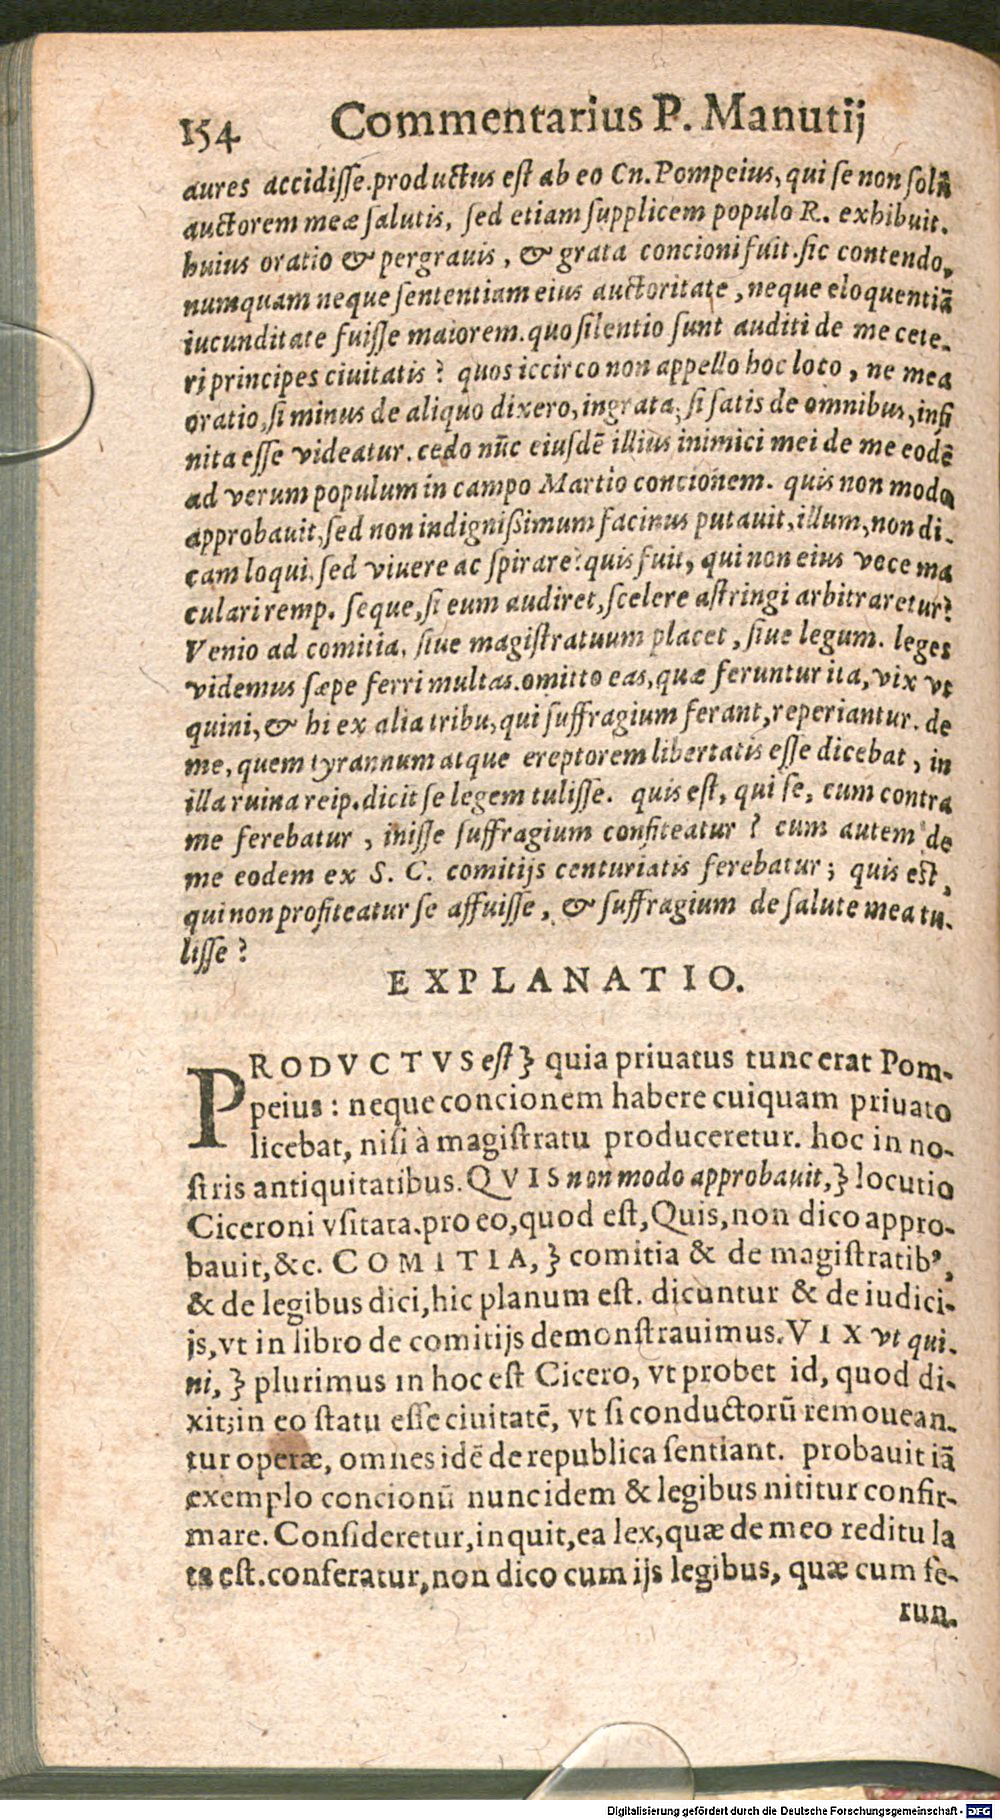 154 Commentarius P. Manutij
aures accidisse. productus est ab eo Cn. Pompeius, qui se non solũ
auctorem meæ salutis, sed etiam supplicem populo R. exhibuit.
huius oratio & pergrauis, & grata concioni fuit. sic contendo,
numquam neque sententiam eius auctoritate, neque eloquentiã
iucunditate fuisse maiorem. quo silentio sunt auditi de me cete-
ri principes ciuitatis? quos iccirco non appello hoc loco, ne mea
oratio, si minus de aliquo dixero, ingrata; si satis de omnibus, infi
nita esse videatur. cedo nũc eiusdẽ illius inimici mei de me eodẽ
ad verum populum in campo Martio concionem. quis non modo
approbauit, sed non indignißimum facinus putauit, illum, non di-
cam loqui, sed viuere ac spirare? quis fuit, qui non eius voce ma
culari remp. seque, si eum audiret, scelere astringi arbitraretur?
Venio ad comitia, siue magistratuum placet, siue legum. leges
videmus sæpe ferri multas. omitto eas, quæ feruntur ita, vix vt
quini, & hi ex alia tribu, qui suffragium ferant, reperiantur. de
me, quem tyrannum atque ereptorem libertatis esse dicebat, in
illa ruina reip. dicit se legem tulisse. quis est, qui se, cum contra
me ferebatur, inisse suffragium confiteatur? cum autem de
me eodem ex S. C. comitijs centuriatis ferebatur; quis est,
qui non profiteatur se affuisse, & suffragium de salute mea tu-
lisse?
EXPLANATIO.
PRODVCTVS est} quia priuatus tunc erat Pom-
peius: neque concionem habere cuiquam priuato
licebat, nisi à magistratu produceretur. hoc in no-
stris antiquitatibus. QVIS non modo approbauit,} locutio
Ciceroni vsitata. pro eo, quod est, Quis, non dico appro-
bauit, &c. COMITIA,} comitia & de magistratib⁹,
& de legibus dici, hic planum est. dicuntur & de iudici-
js, vt in libro de comitijs demonstrauimus. VIX vt qui-
ni,} plurimus in hoc est Cicero, vt probet id, quod di-
xit; in eo statu esse ciuitatẽ, vt si conductorũ remouean-
tur operæ, omnes idẽ de republica sentiant. probauit iã
exemplo concionũ nunc idem & legibus nititur confir-
mare. Consideretur, inquit, ea lex, quæ de meo reditu la
ta est. conferatur, non dico cum ijs legibus, quæ cum fe-
run-
Digitalisierung gefördert durch die Deutsche Forschungsgemeinschaft - DFG